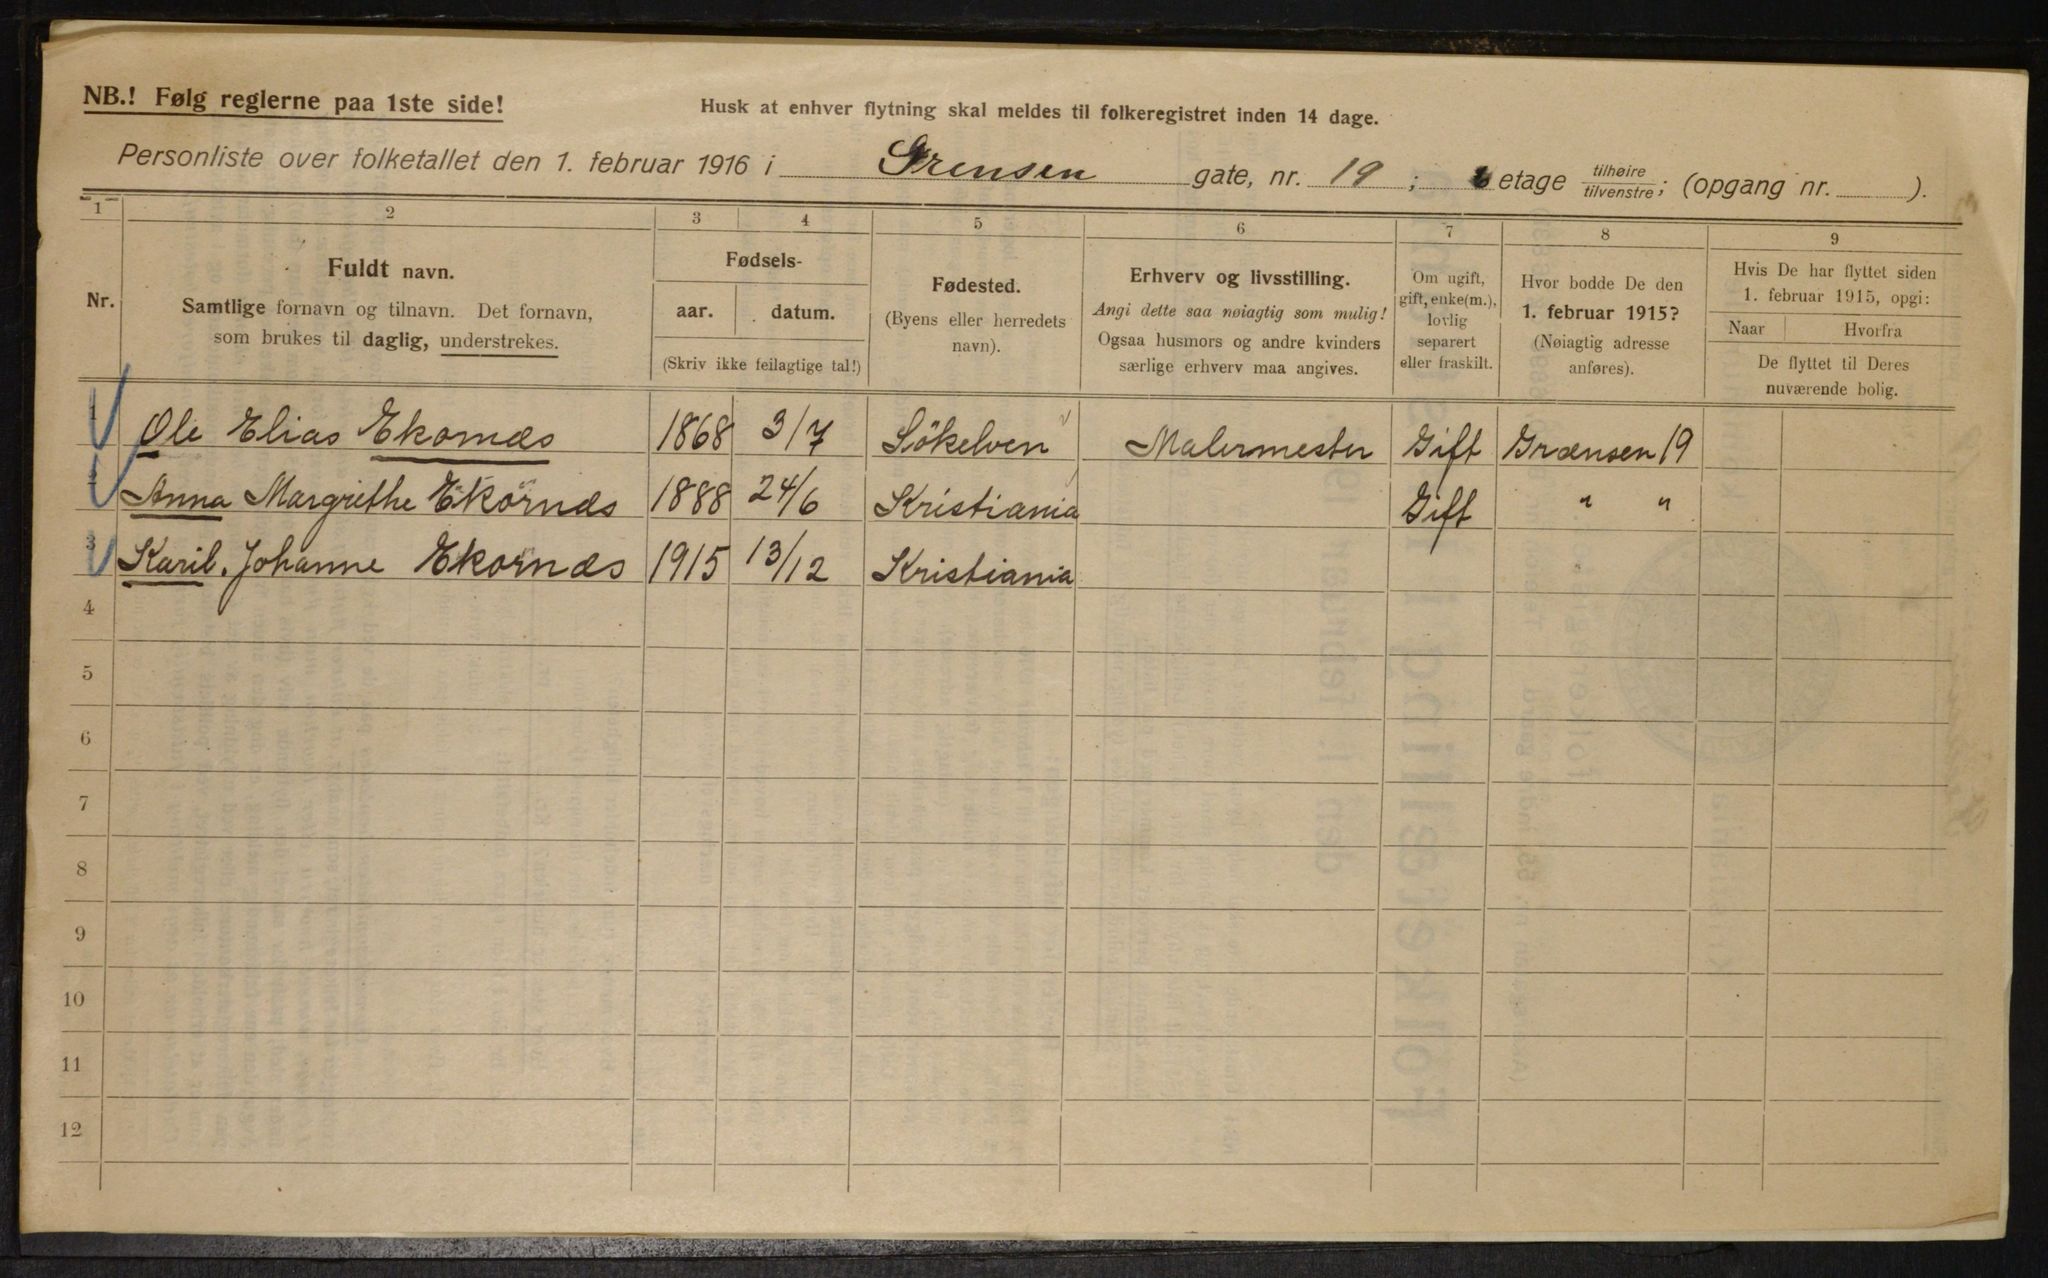 NB.! Følg reglerne paa 1ste side!
Husk at enhver flytning skal meldes til folkeregistret inden 14 dage.
Personliste over folketallet den 1. februar 1916 i Grensen gate, nr. 19; 6 etage tilhøire/tilvenstre; (opgang nr. ).
1 2 3 4 5 6 7 8 9
Nr.
Fuldt navn.
Samtlige fornavn og tilnavn. Det fornavn,
som brukes til daglig, understrekes.
Fødsels-
aar. datum.
(Skriv ikke feilagtige tal!)
Fødested.
(Byens eller herredets
navn).
Erhverv og livsstilling.
Angi dette saa nøiagtig som mulig!
Ogsaa husmors og andre kvinders
særlige erhverv maa angives.
Om ugift,
gift, enke(m.),
lovlig
separert
eller fraskilt.
Hvor bodde De den
1. februar 1915?
(Nøiagtig adresse
anføres).
Hvis De har flyttet siden
1. februar 1915, opgi:
Naar Hvorfra
De flyttet til Deres
nuværende bolig.
1 Ole Elias Ekornæs 1868 3/7 Sökelven Malermester Gift Grænsen 19
2 Anna Margrethe Ekornæs 1888 24/6 Kristiania Gift " "
3 Karil. Johanne Ekornæs 1915 13/12 Kristiania
4
5
6
7
8
9
10
11
12